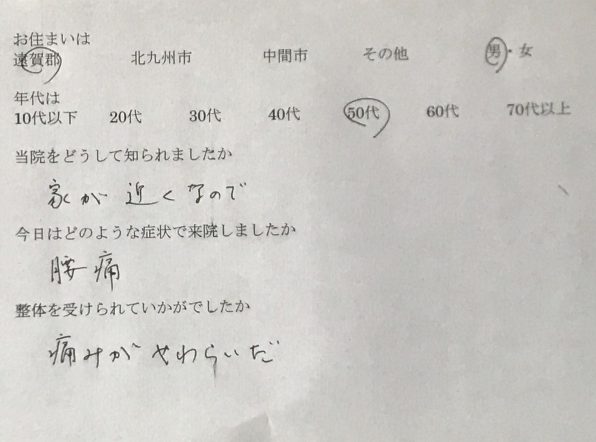 お住まいは
遠賀郡 北九州市 中間市 その他 男・女
年代は
10代以下 20代 30代 40代 50代 60代 70代以上
当院をどうして知られましたか
家が近くなので
今日はどのような症状で来院しましたか
腰痛
整体を受けられていかがでしたか
痛みがやわらいだ